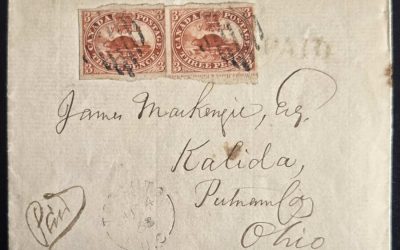 CANADA POSTAGE CANADA POSTAGE
3 3 3 3
THREE PENCE THREE PENCE
PAID
James Mackenzie, Esq.
Kalida,
Putnam Co
Paid
Ohio